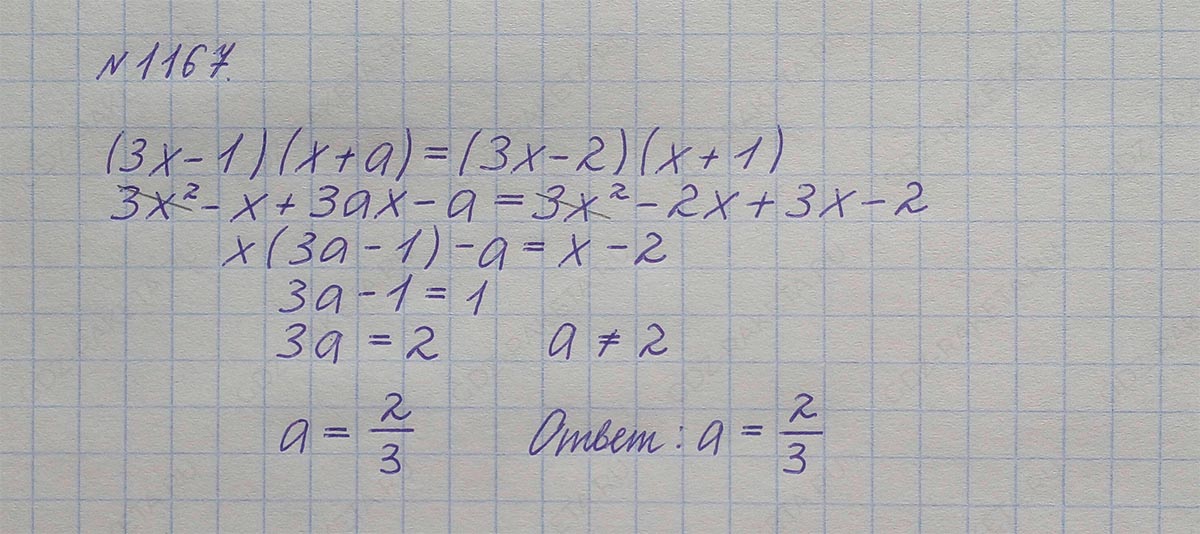 №1167.
(3x-1)(x+a)=(3x-2)(x+1)
3x²-x+3ax-a=3x²-2x+3x-2
x(3a-1)-a=x-2
3a-1=1
3a=2 a≠2
a=2/3 Ответ: a=2/3